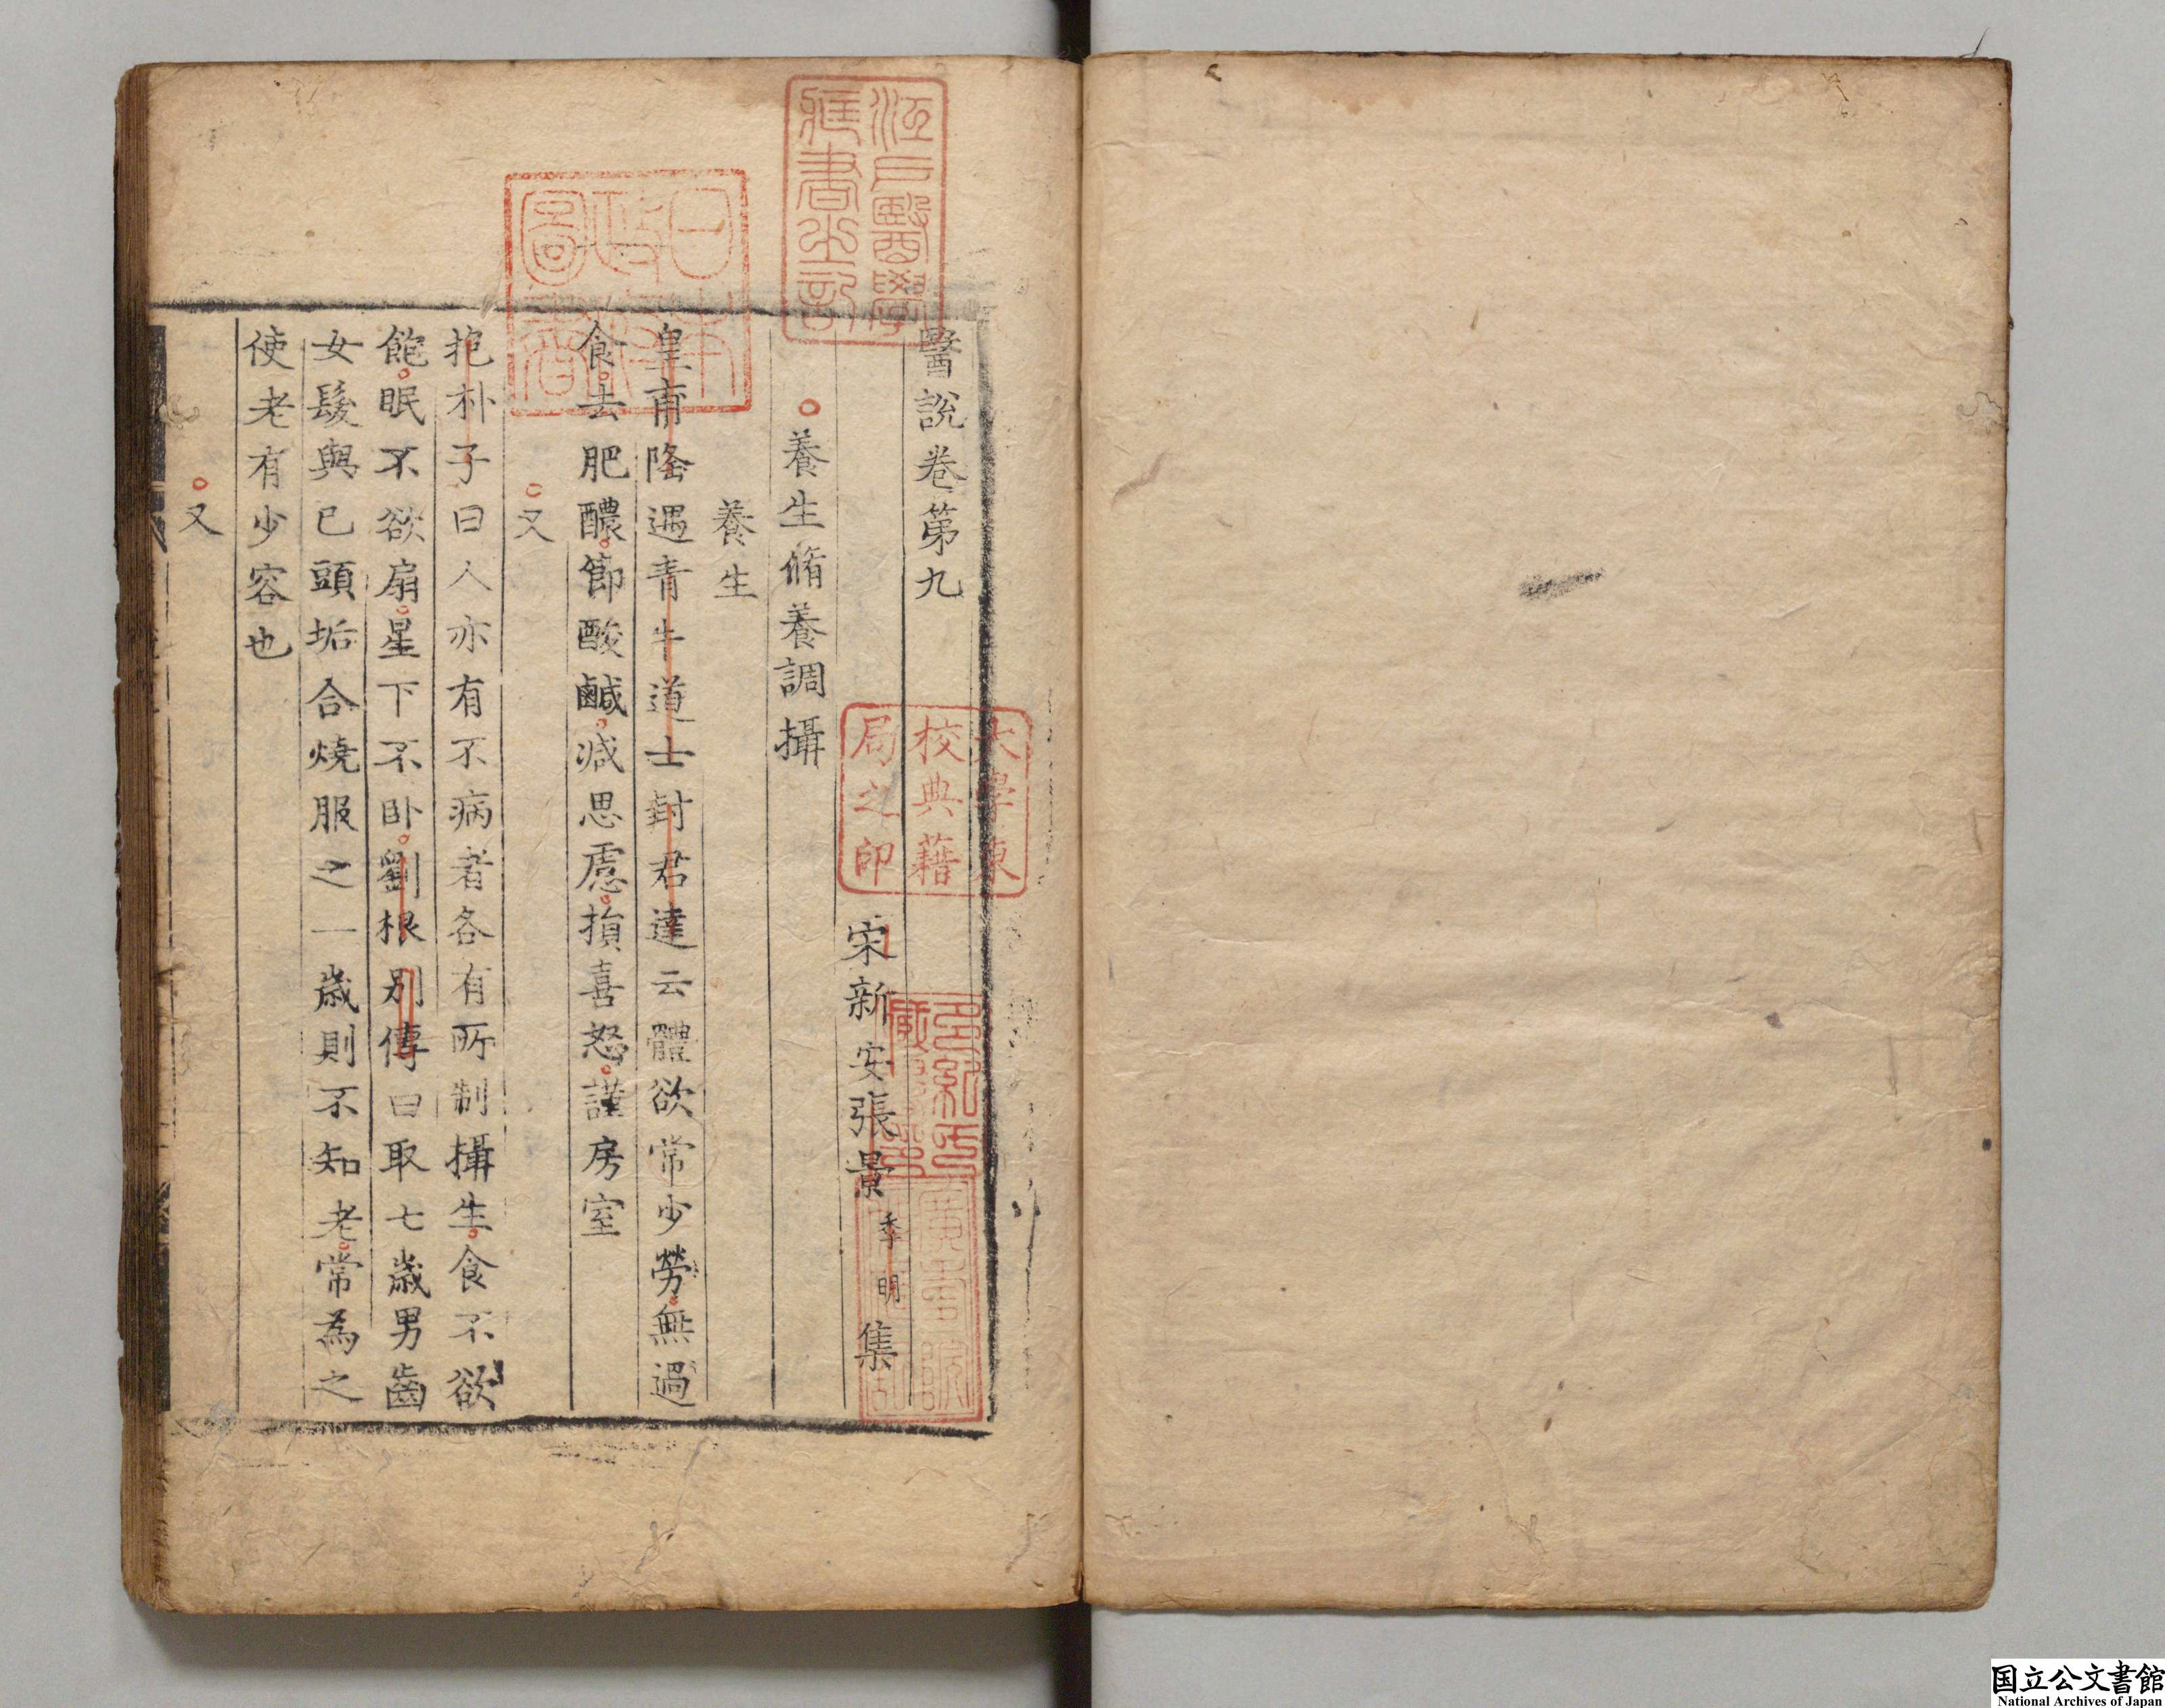 醫說卷第九
宋新安張景季明集
養生脩養調攝
養生
皇甫隆遇青牛道士封君達云體欲常少勞無過
食去肥醲節酸鹹减思慮損喜怒謹房室
又
抱朴子曰人亦有不病者各有所制攝生食不欲
飽眠不欲扇星下不卧劉根别傳曰取七歲男齒
女髮與已頭垢合燒服之一歲則不知老常為之
使老有少容也
又
江戸醫學
藏書之記
日本
政府
圖書
大學東
校典籍
局之印
国立公文書館
National Archives of Japan